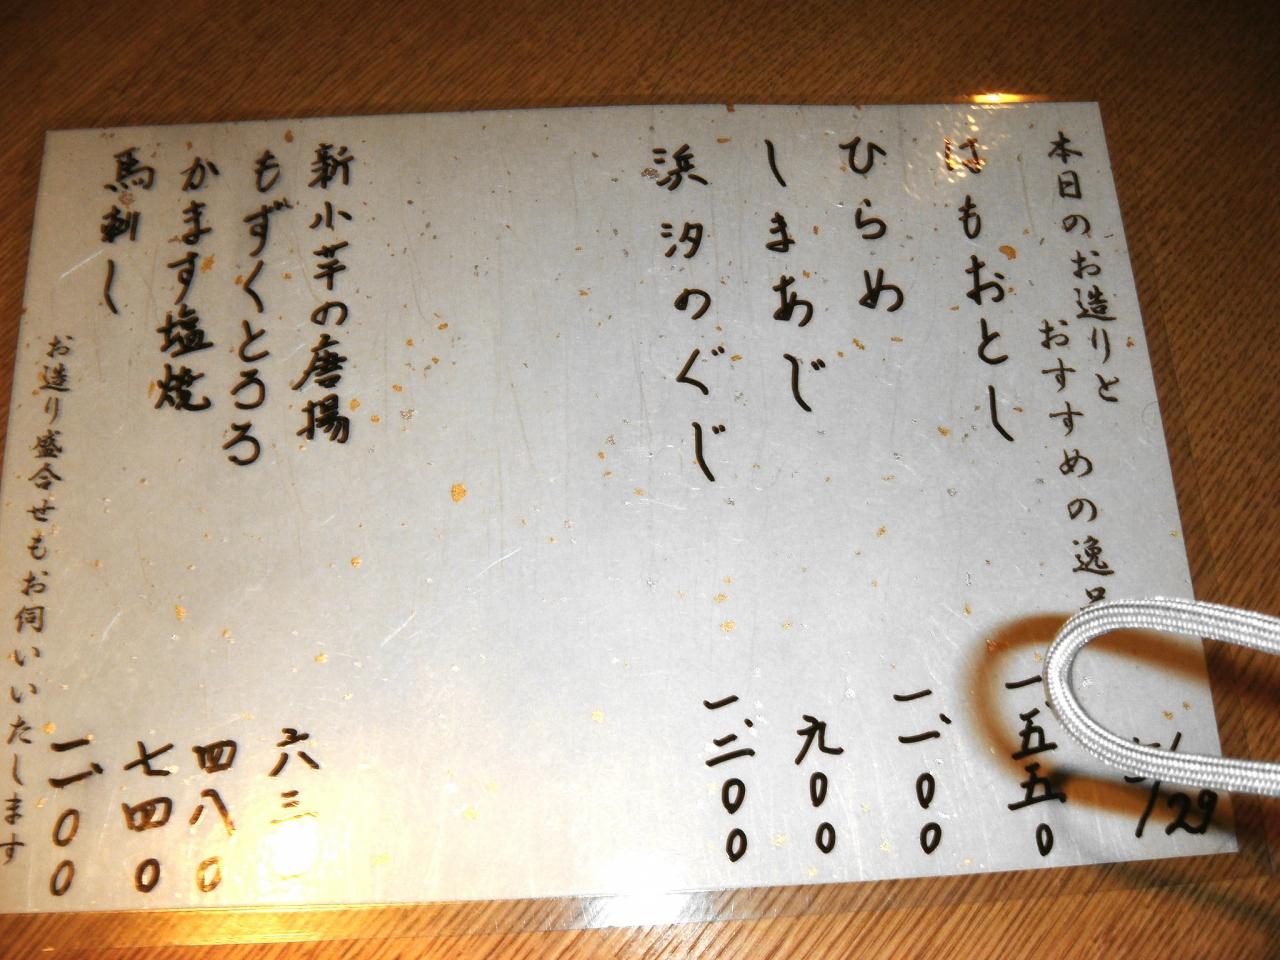 本日のお造りと
おすすめの逸品
はもおとし 一、五五〇
ひらめ 一、一〇〇
しまあじ 九〇〇
浜汐のぐじ 一、二〇〇
新小芋の唐揚 六三
もずくとろろ 四八〇
かます塩焼 七四〇
馬刺し 一、一〇〇
お造り盛合せもお伺いいたします
/29